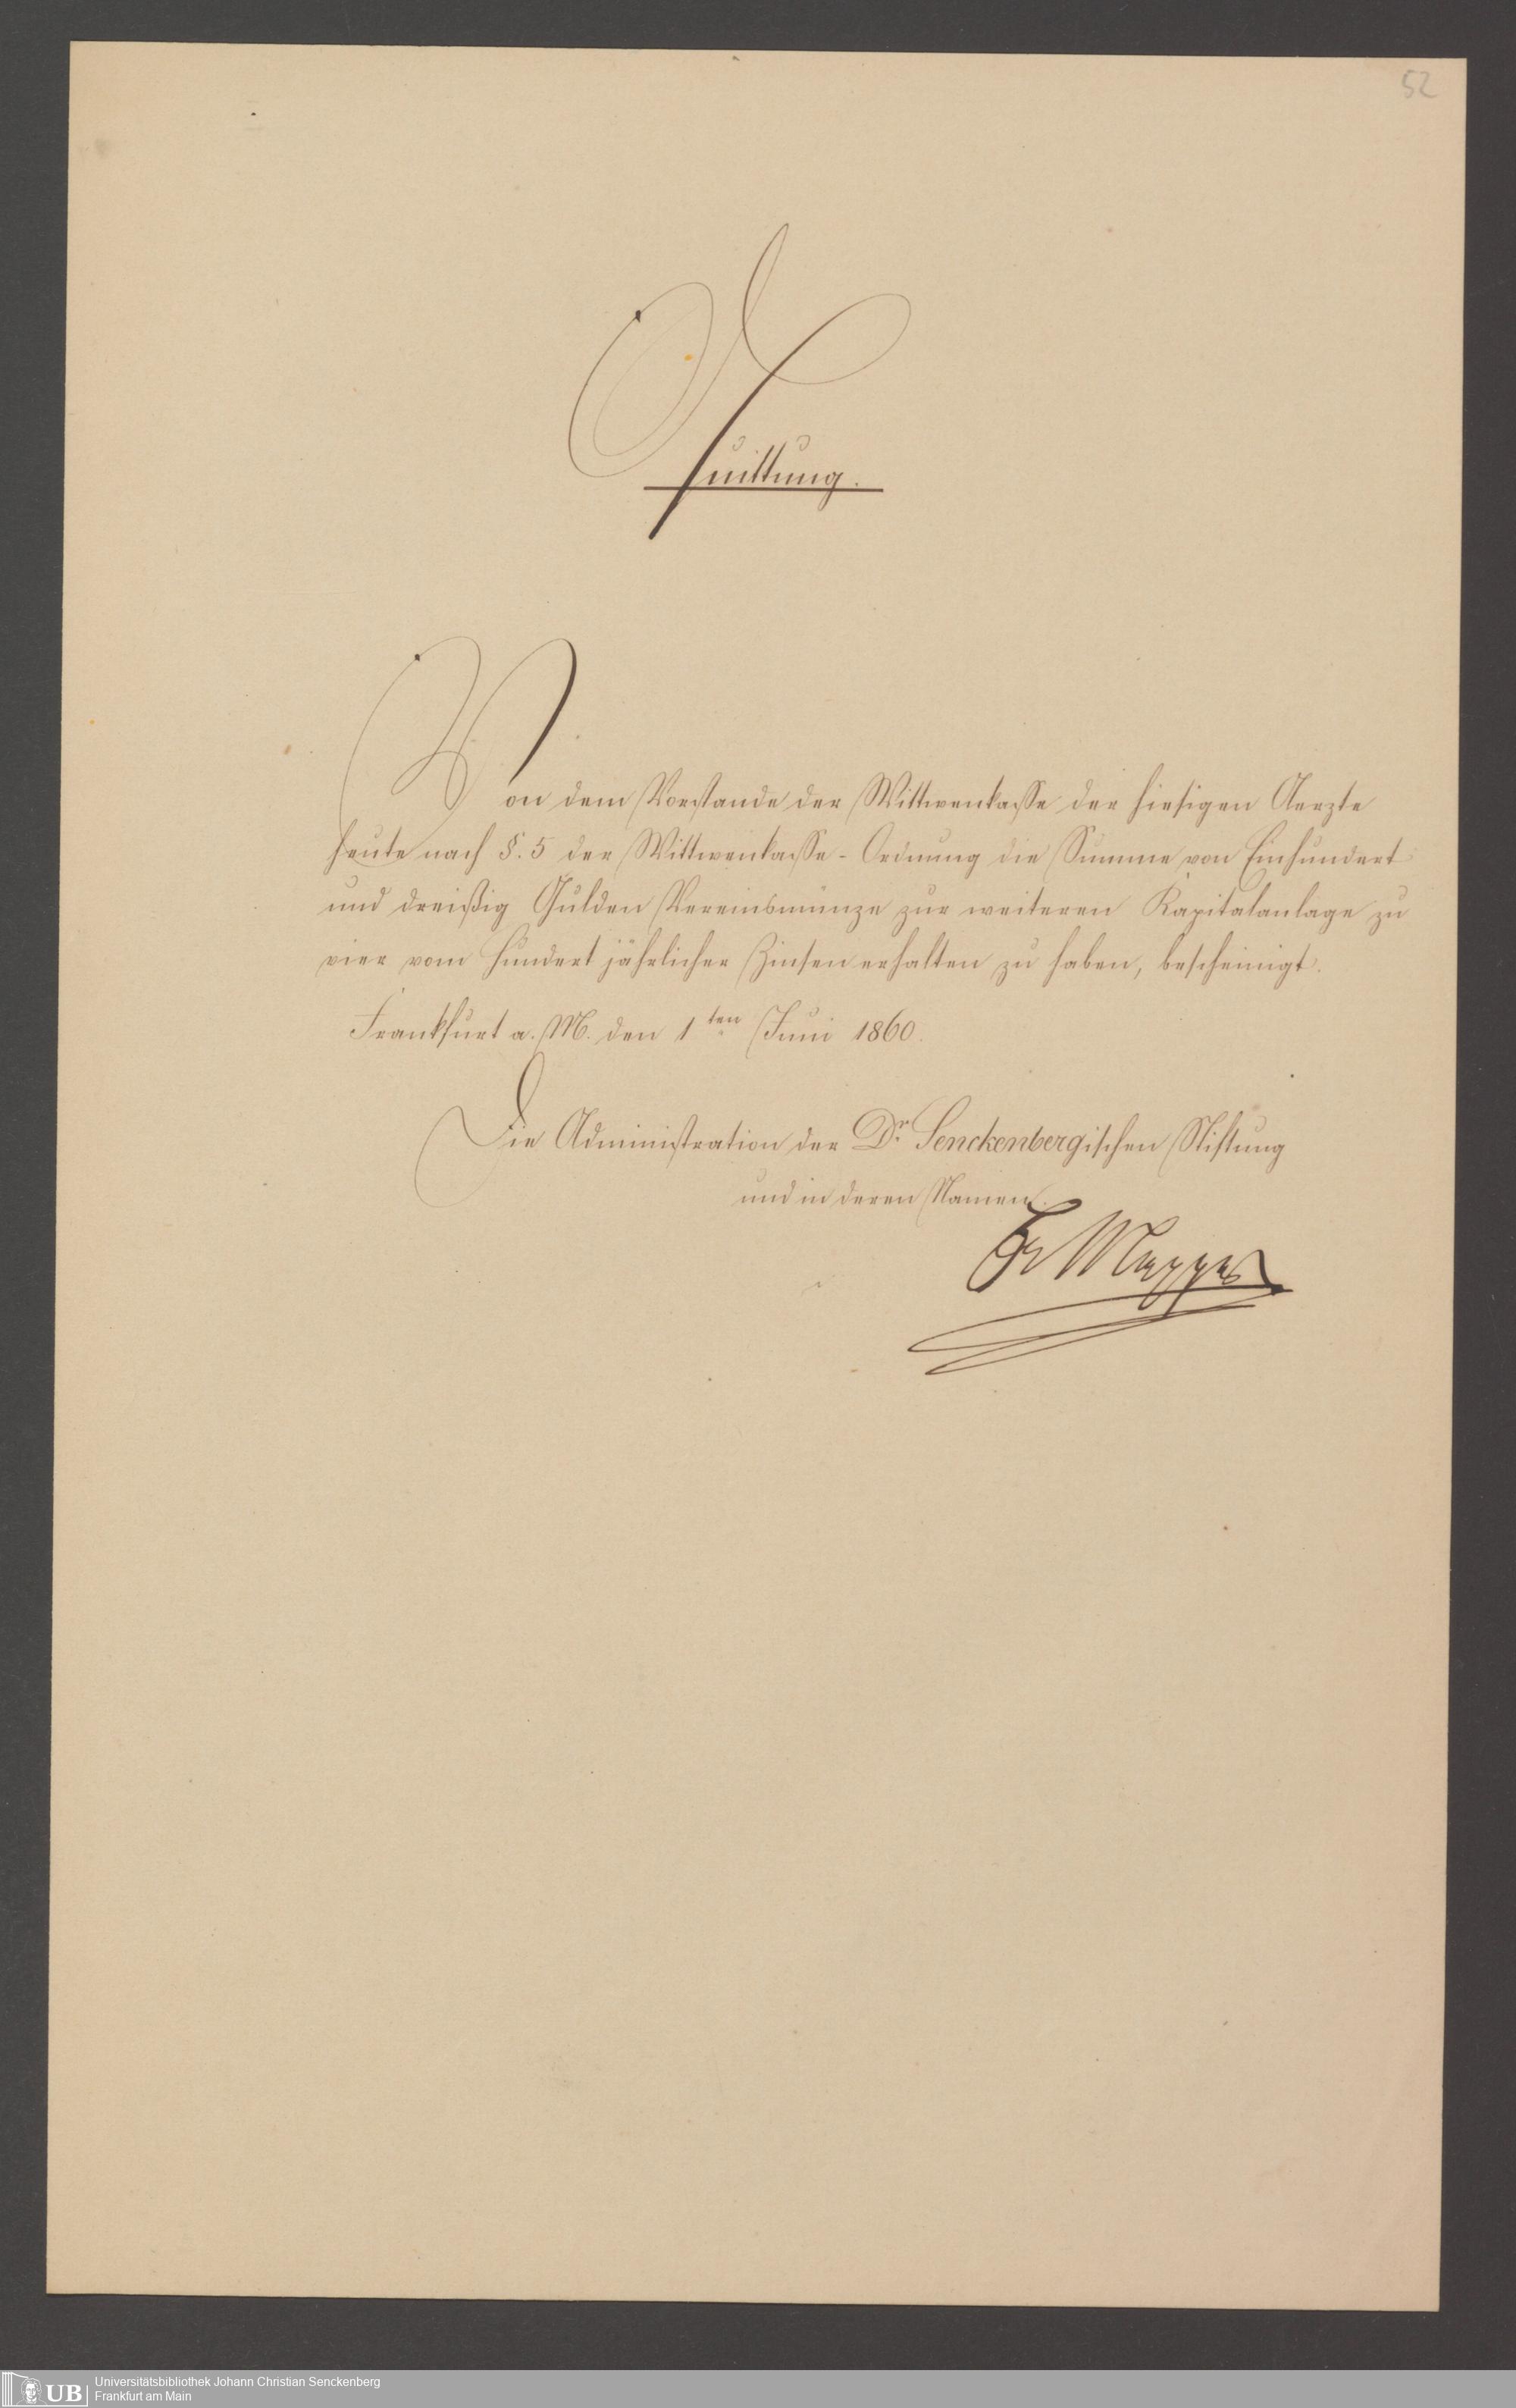 52
Quittung.
Von dem Vorstande der Wittwenkasse der hiesigen Aerzte
heute nach §. 5 der Wittwenkasse-Ordnung die Summe von Einhundert
und dreißig Gulden Vereinsmünze zur weiteren Kapitalanlage zu
vier vom Hundert jährlicher Zinsen erhalten zu haben, bescheinigt.
Frankfurt a. M. den 1ten Juni 1860.
Die Administration der Dr. Senckenbergischen Stiftung
und in deren Namen.
UB
Universitätsbibliothek Johann Christian Senckenberg
Frankfurt am Main